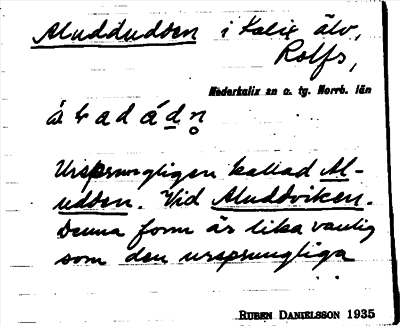 Aluddudden i Kalix älv,
Rolfs,
Nederkalix sn o. tg. Norrb. län
Ursprungligen kallad Al-
udden. Vid Aluddviken.
Denna form är lika vanlig
som den ursprungliga
RUBEN DANIELSSON 1935